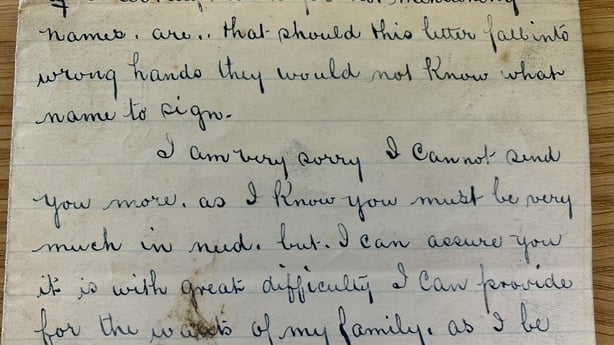 not mentioning
names. are.. that should this letter fall into
wrong hands they would not know what
name to sign.
I am very sorry I cannot send
you more. as I know you must be very
much in need. but. I can assure you
it is with great difficulty I can provide
for the wants of my family. as I be